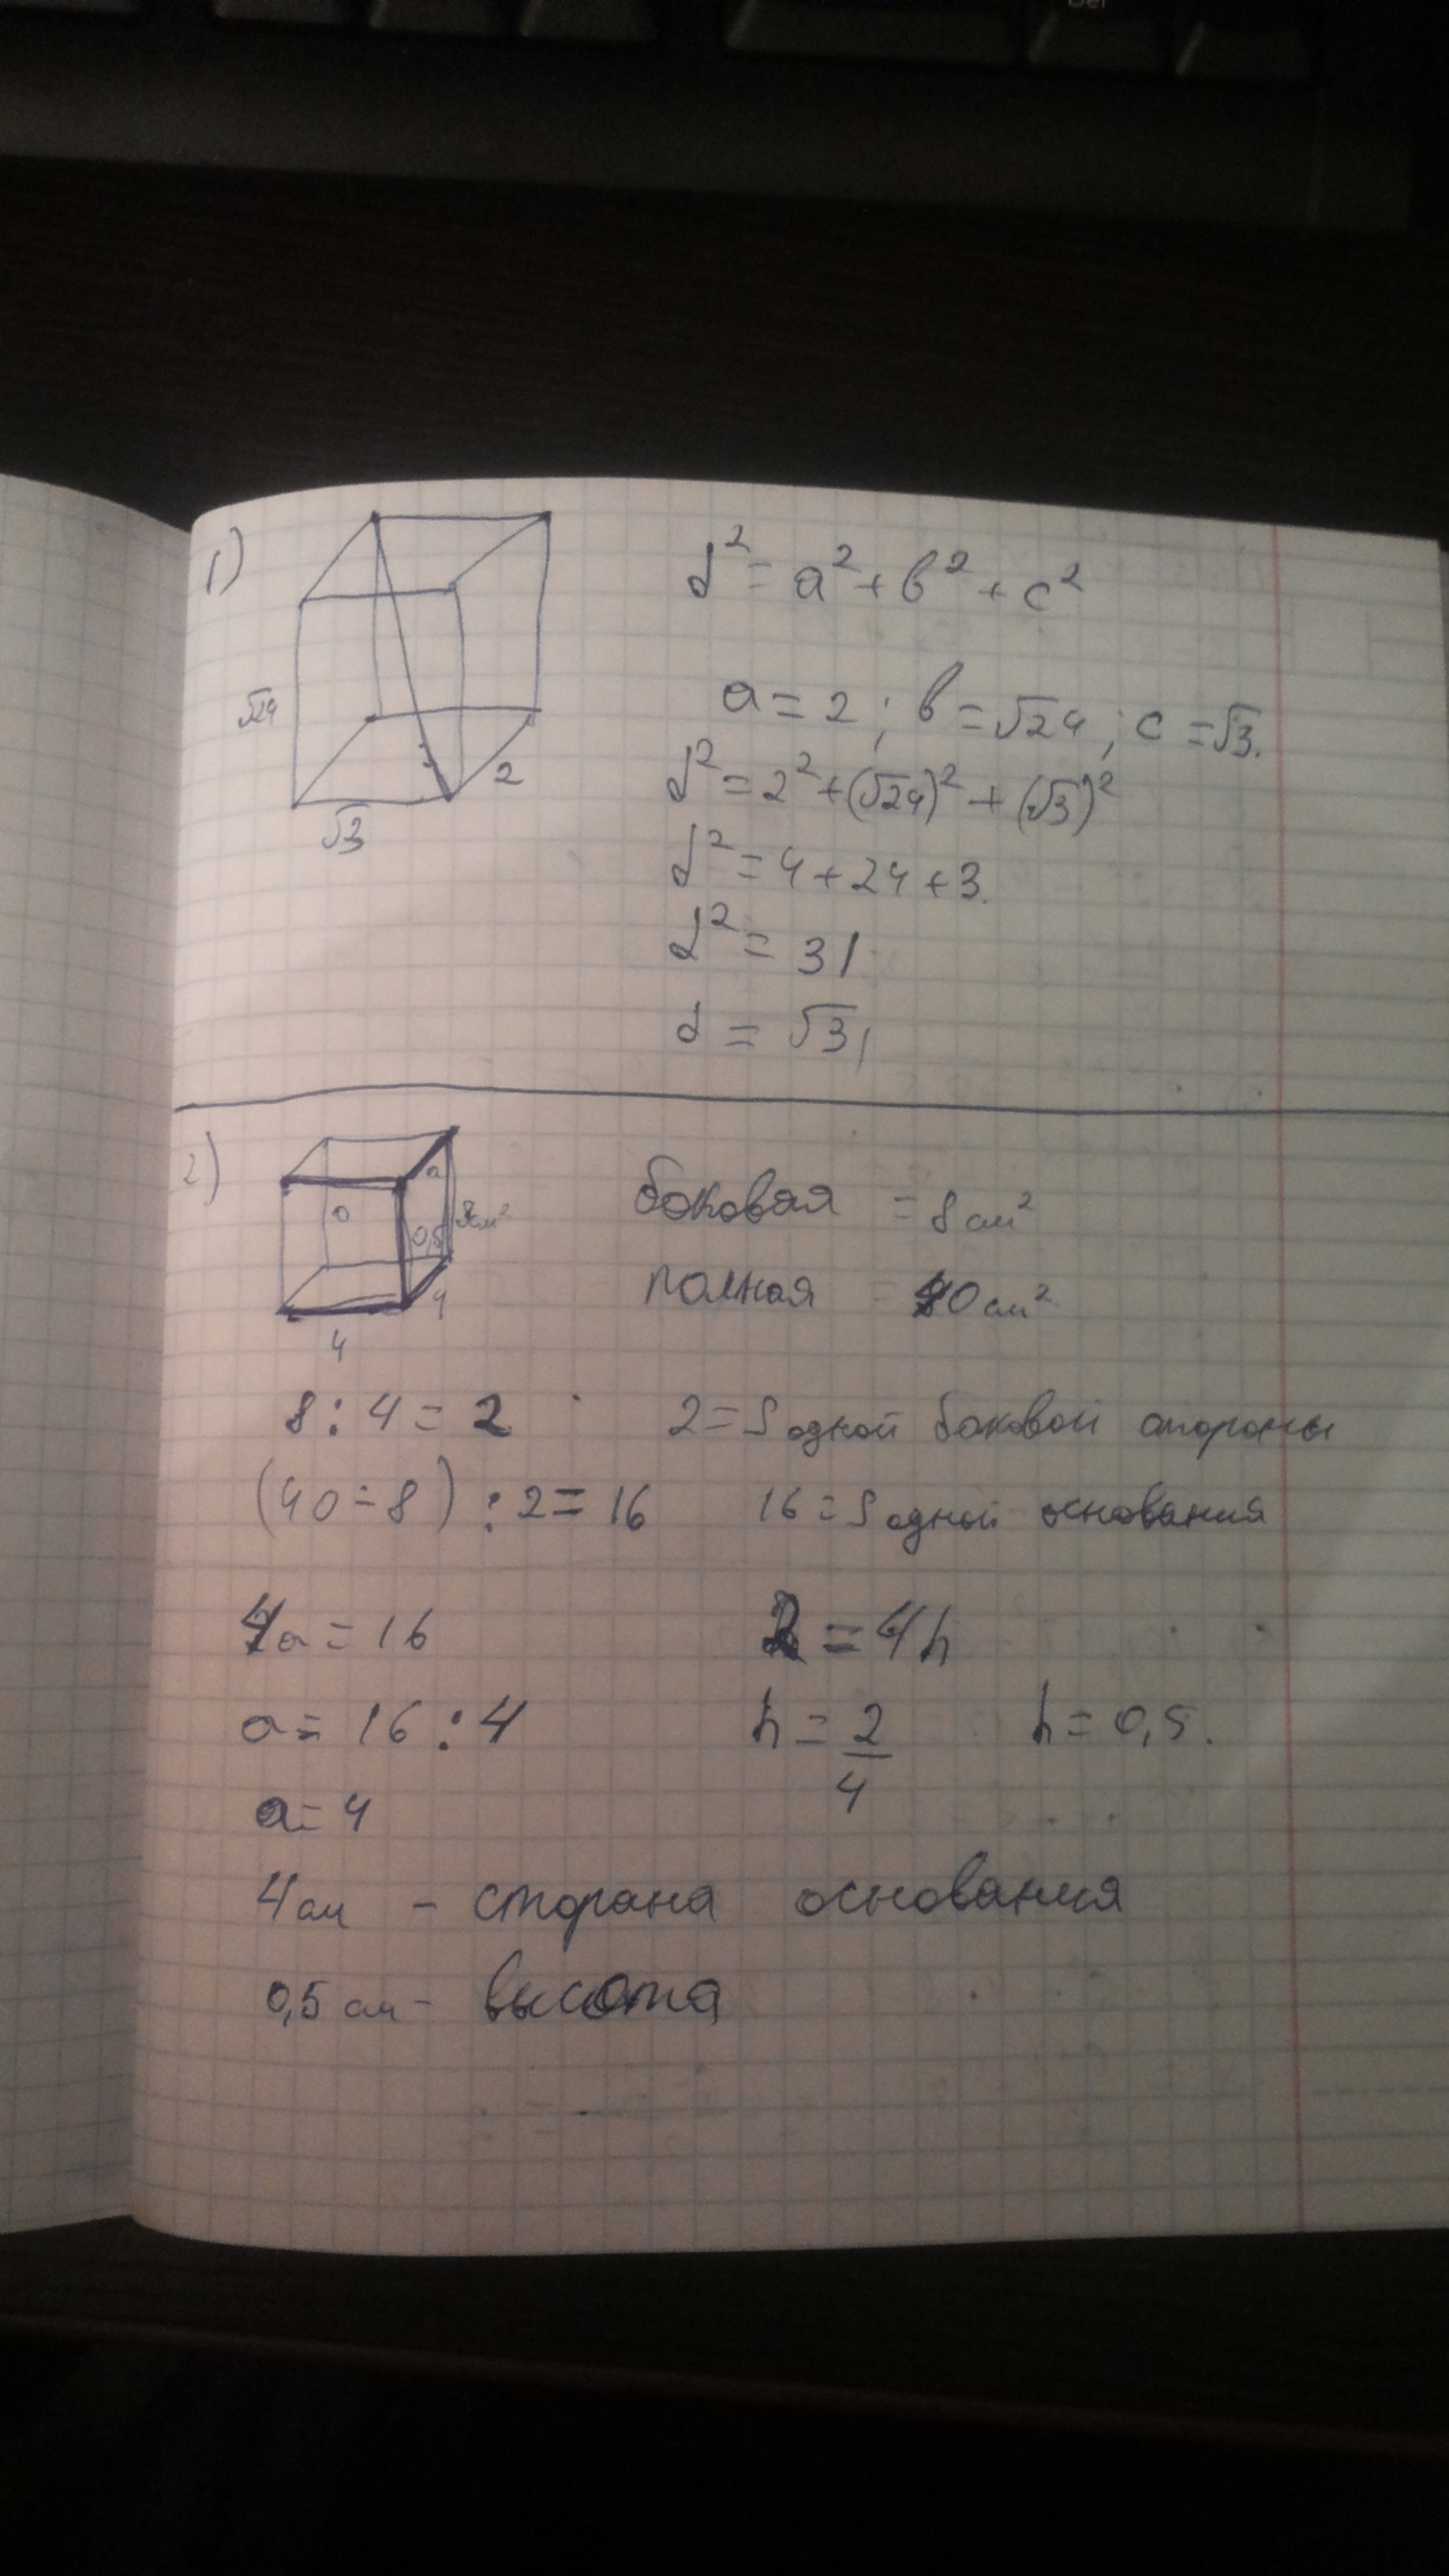 Del
1)
√24
√3
2
d² = a² + b² + c²
a = 2 ; b = √24 ; c = √3.
d² = 2² + (√24)² + (√3)²
d² = 4 + 24 + 3.
d² = 31
d = √31
2)
a
0,5
8см²
4
4
боковая = 8 см²
полная = 40 см²
8 : 4 = 2 2 = S одной боковой стороны
(40 - 8) : 2 = 16 16 = S одной основания
4a = 16 2 = 4h
a = 16 : 4 h = 2/4 h = 0,5.
a = 4
4 см - сторана основания
0,5 см - высота